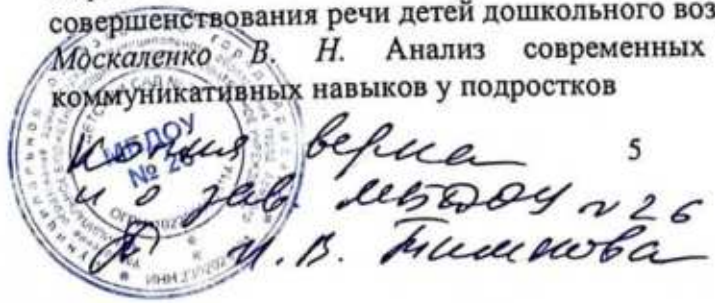 совершенствования речи детей дошкольного воз
Москаленко В. Н. Анализ современных
коммуникативных навыков у подростков
МБДОУ
№ 26
5
Копия верна
и о зав. МБДОУ № 26
И. В. Тимкова